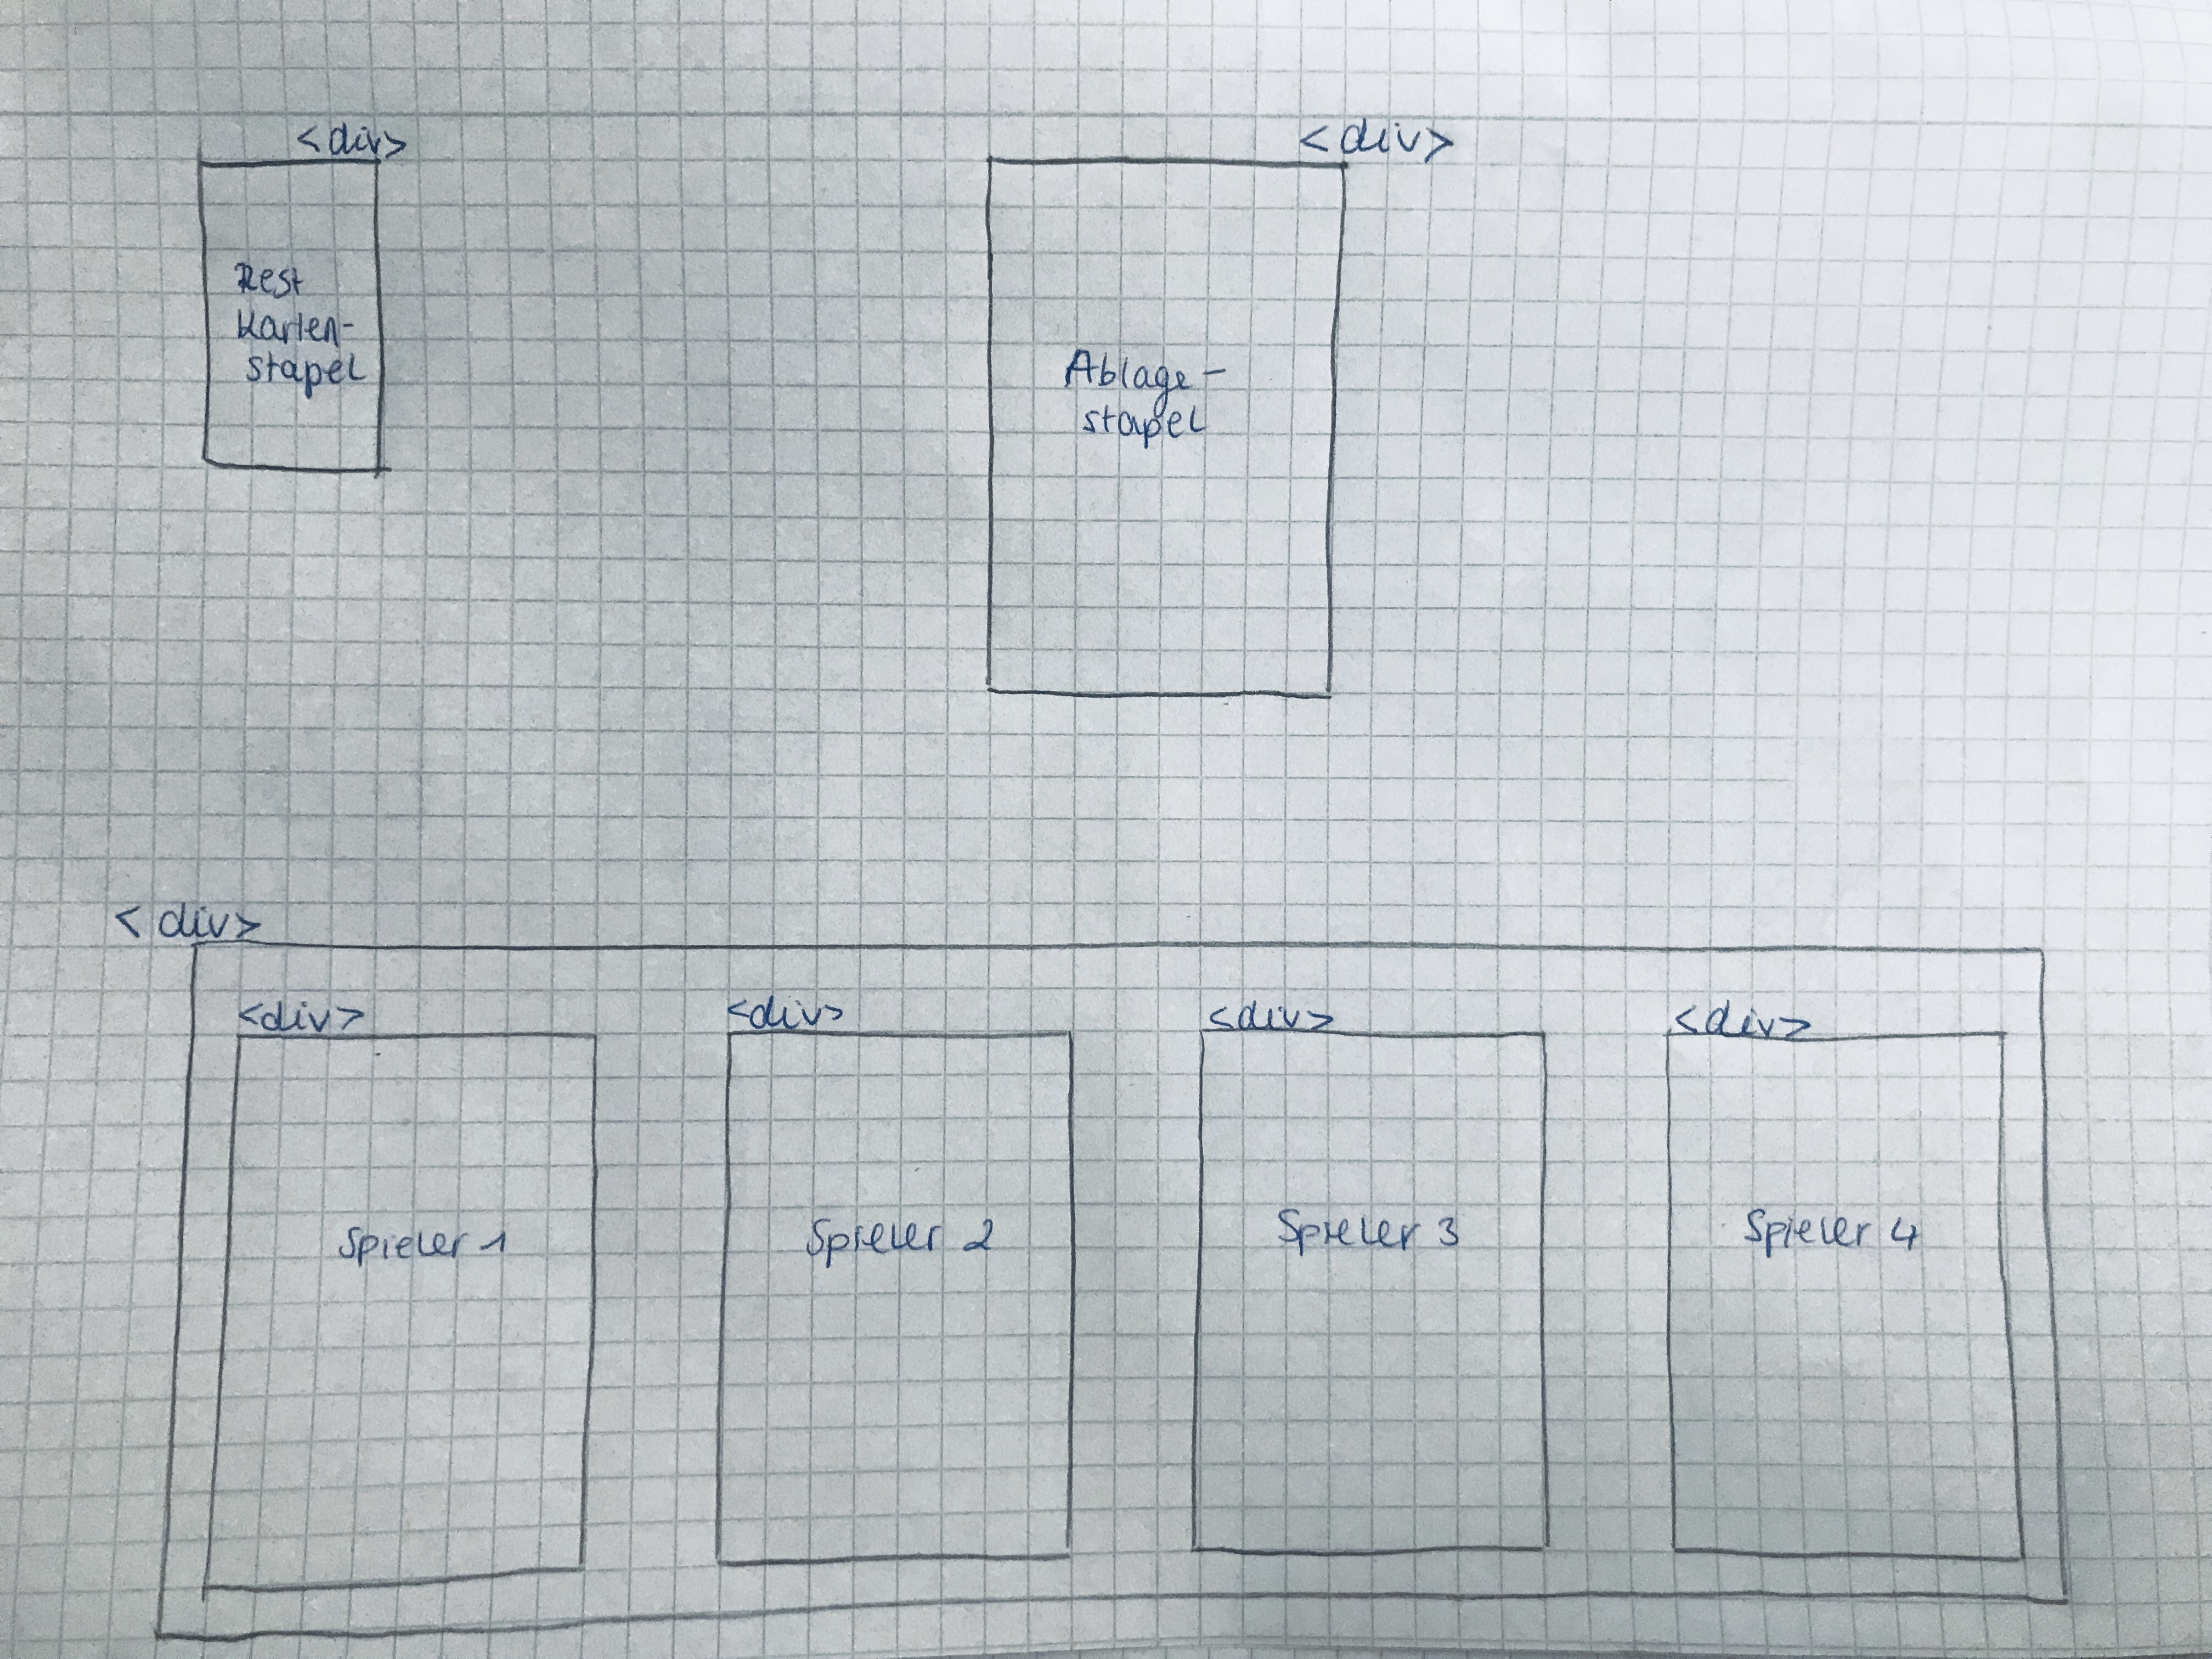 <div>
Rest
Karten-
stapel
<div>
Ablage-
stapel
<div>
<div>
Spieler 1
<div>
Spieler 2
<div>
Spieler 3
<div>
Spieler 4